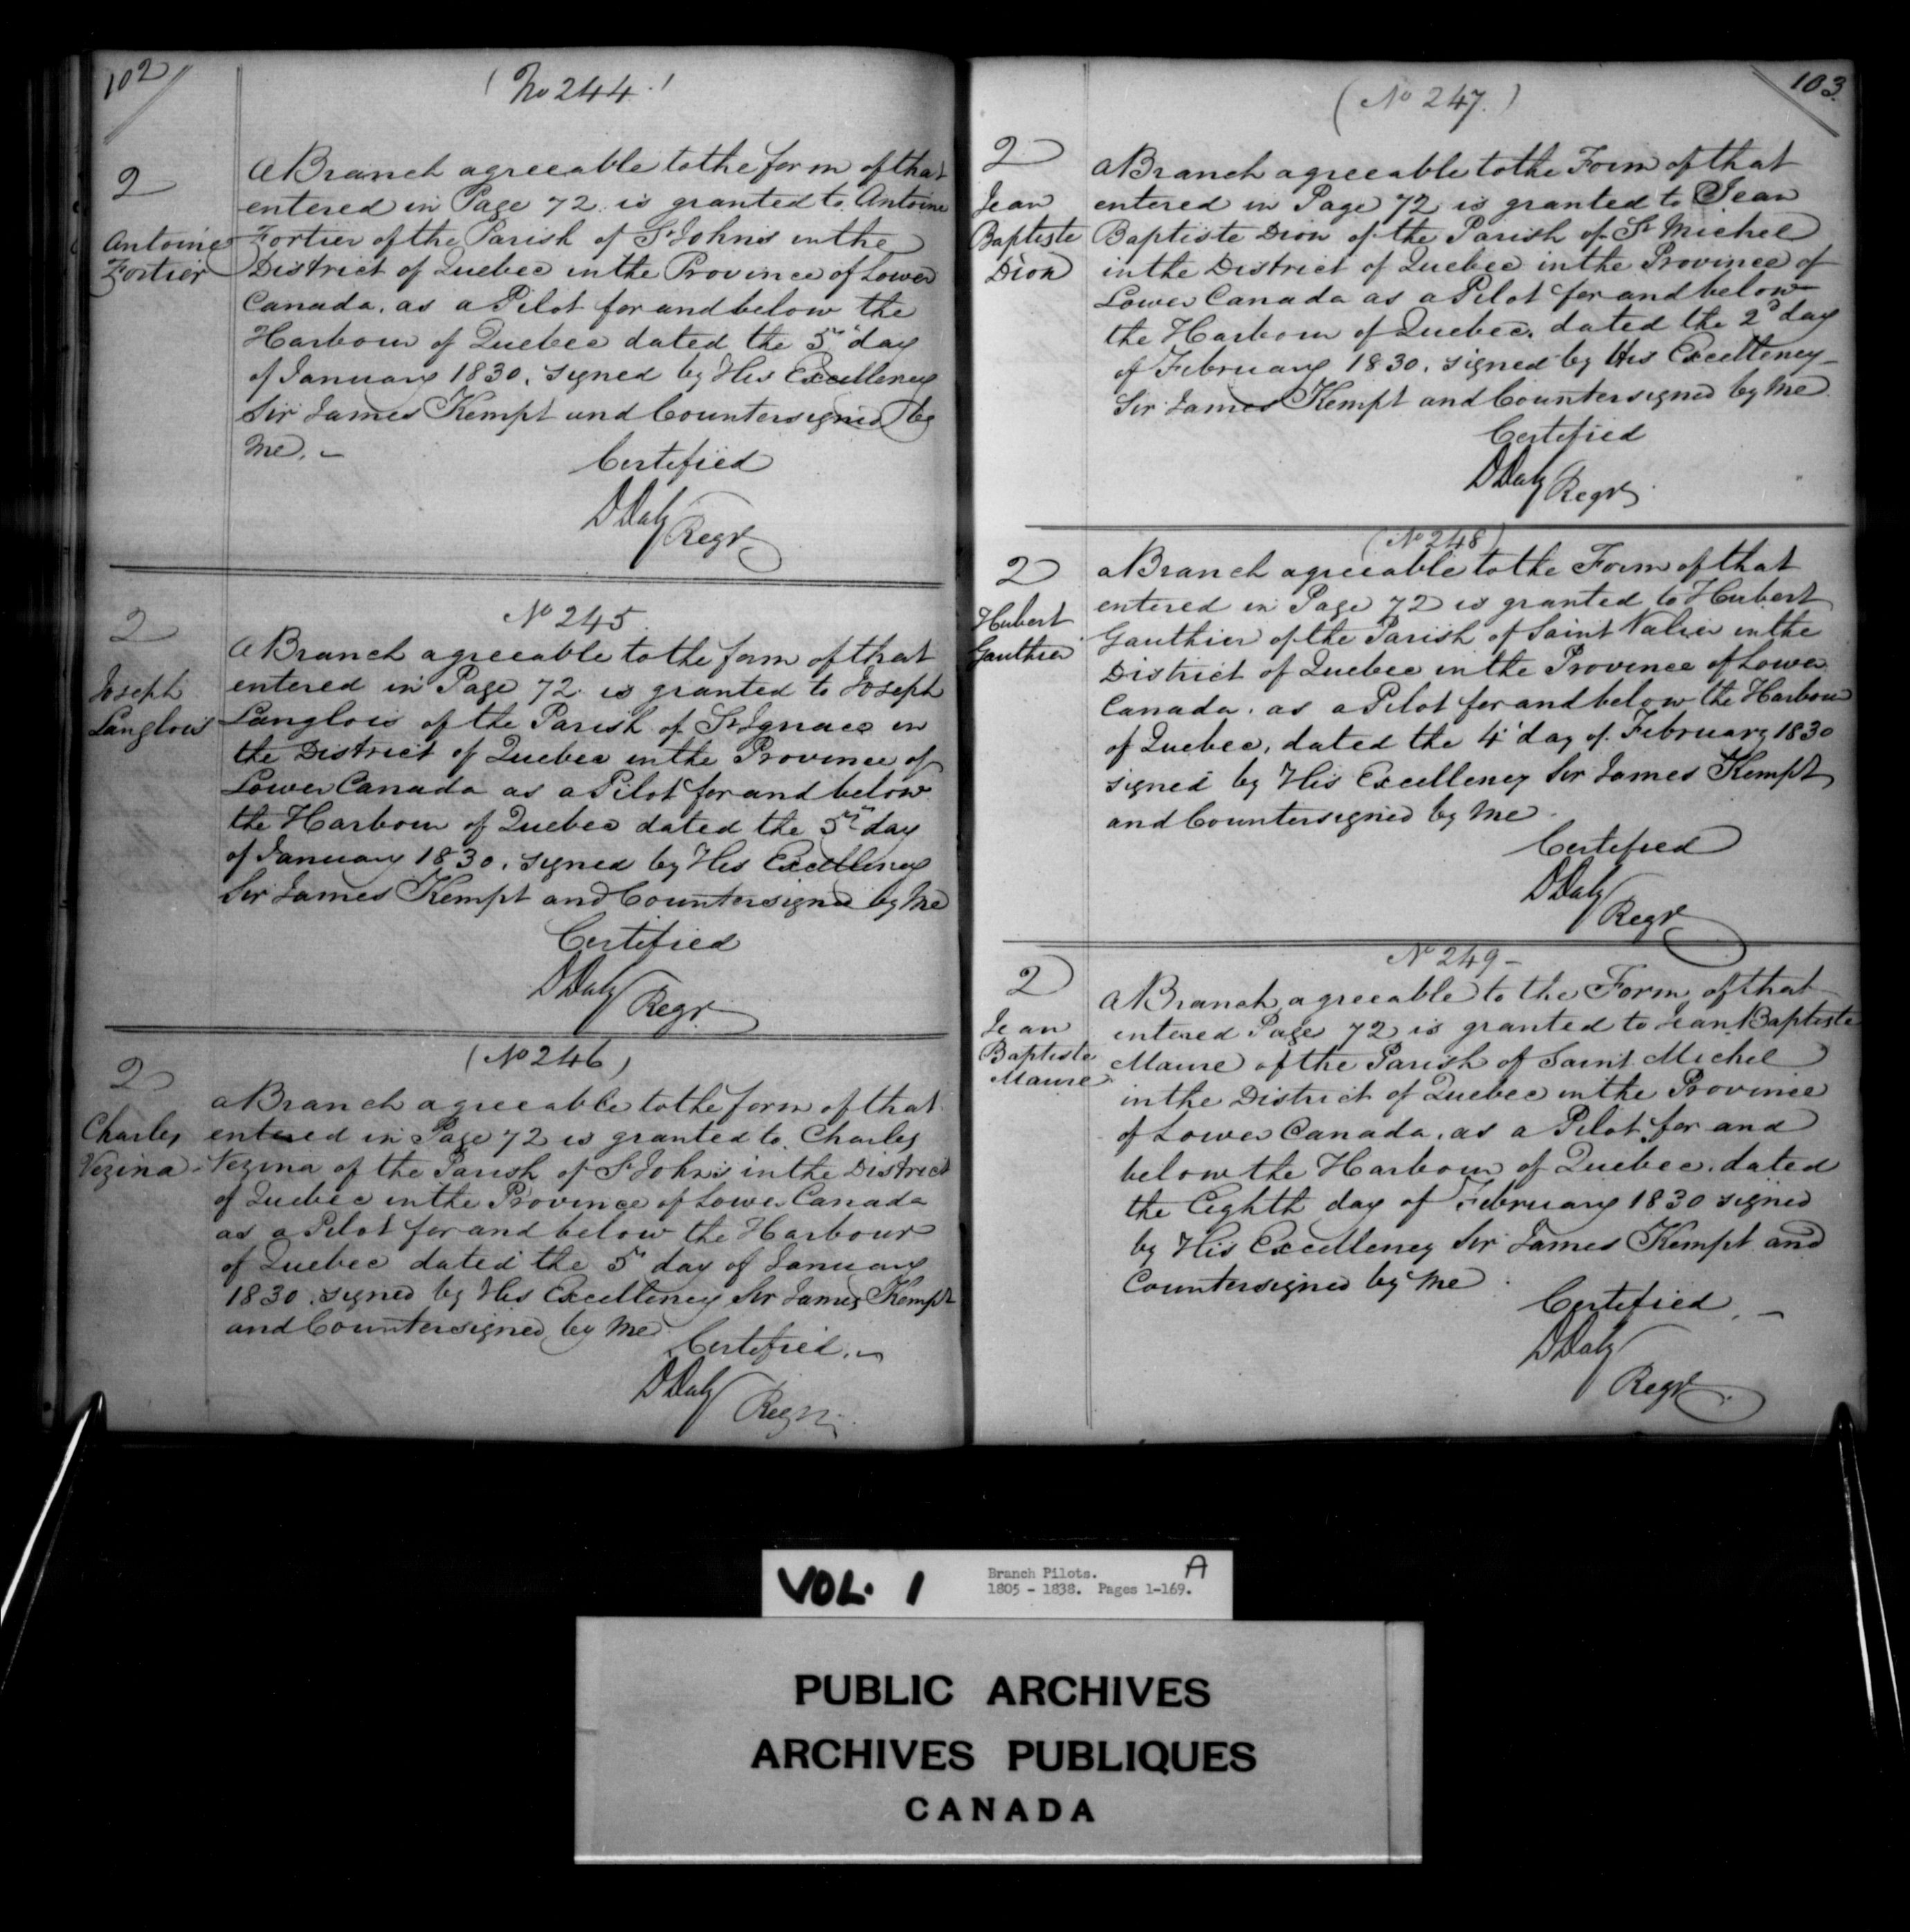 102
(No 244.)
2
Antoine
Fortier
A Branch agreeable to the form of that
entered in Page 72. is granted to Antoine
Fortier of the Parish of St Johns in the
District of Quebec in the Province of Lower
Canada, as a Pilot for and below the
Harbour of Quebec dated the 5th day
of January 1830. signed by His Excellency
Sir James Kempt and Countersigned by
Me. –
Certified
DDaly
Regr
No 245.
2
Joseph
Langlois
A Branch agreeable to the form of that
entered in Page 72. is granted to Joseph
Langlois of the Parish of St Ignace in
the District of Quebec in the Province of
Lower Canada as a Pilot for and below
the Harbour of Quebec dated the 5th day
of January 1830. signed by His Excellency
Sir James Kempt and Countersigned by Me
Certified
DDaly
Regr
(No 246)
2
Charles
Vezina
A Branch agreeable to the form of that
entered in Page 72 is granted to Charles
Vezina of the Parish of St Johns in the District
of Quebec in the Province of Lower Canada
as a Pilot for and below the Harbour
of Quebec dated the 5th day of January
1830. signed by His Excellency Sir James Kempt
and Countersigned by Me
Certified. –
DDaly
Regr.
103.
(No 247.)
2
Jean
Baptiste
Dion
A Branch agreeable to the Form of that
entered in Page 72 is granted to Jean
Baptiste Dion of the Parish of St Michel
in the District of Quebec in the Province of
Lower Canada as a Pilot for and below
the Harbour of Quebec, dated the 2d day
of February 1830. signed by His Excellency
Sir James Kempt and Countersigned by Me
Certified
DDaly
Regr.
(No 248)
2
Hubert
Gauthier
A Branch agreeable to the Form of that
entered in Page 72 is granted to Hubert
Gauthier of the Parish of Saint Valier in the
District of Quebec in the Province of Lower
Canada. as a Pilot for and below the Harbour
of Quebec, dated the 4th day of February 1830
signed by His Excellency Sir James Kempt
and Countersigned by Me.
Certified
DDaly
Regr
No 249 –
2
Jean
Baptiste
Maure
A Branch agreeable to the Form of that
entered Page 72 is granted to Jean Baptiste
Maure of the Parish of Saint Michel
in the District of Quebec in the Province
of Lower Canada, as a Pilot for and
below the Harbour of Quebec. dated
the Eighth day of February 1830 signed
by His Excellency Sir James Kempt and
Countersigned by Me.
Certified. –
DDaly
Regr.
VOL. 1
Branch Pilots.
1805 - 1838. Pages 1-169.
A
PUBLIC ARCHIVES
ARCHIVES PUBLIQUES
CANADA